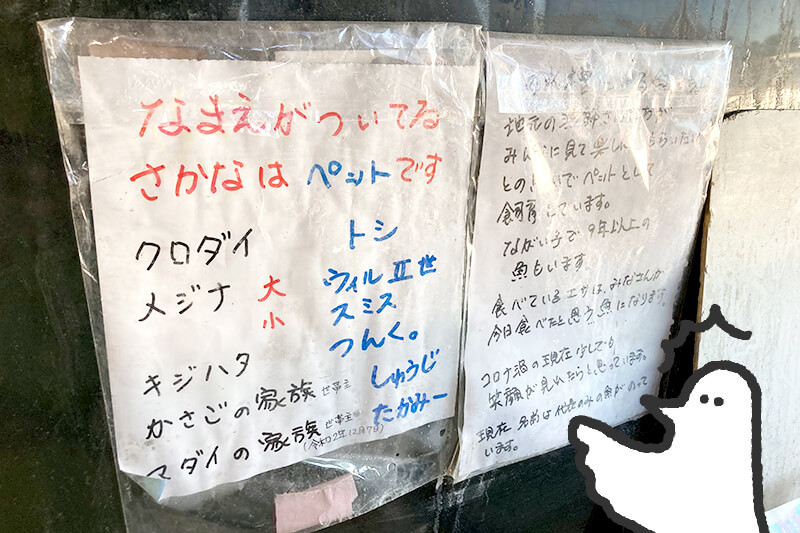 なまえがついてる
さかなは ペットです
クロダイ トシ
メジナ 大 ウィルⅡ世
小 スミス
キジハタ つんく。
かさごの家族 世帯主 しゅうじ
マダイの家族 世帯主 たかみー
(令和2年12月7日)
地元の
みんなに見て楽しんでもらいたい
との思いでペットとして
飼育しています。
ながい子で9年以上の
魚もいます。
食べているエサは、みなさんが
今日食べたと思う魚になります。
コロナ渦の現在 少しでも
笑顔が見れたらと思っています。
現在 名前は代表のみの魚がのって
います。